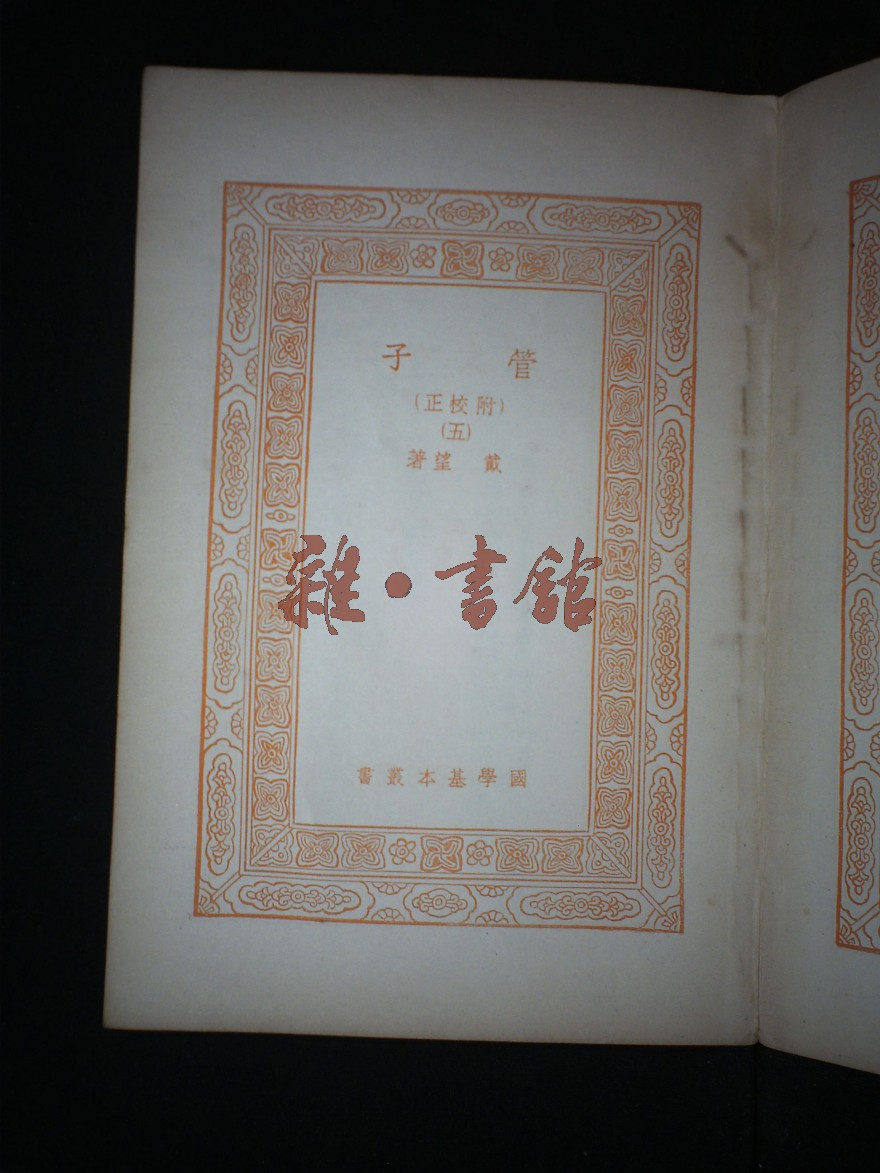 管子
(附校正)
(五)
戴望著
雜·書館
國學基本叢書